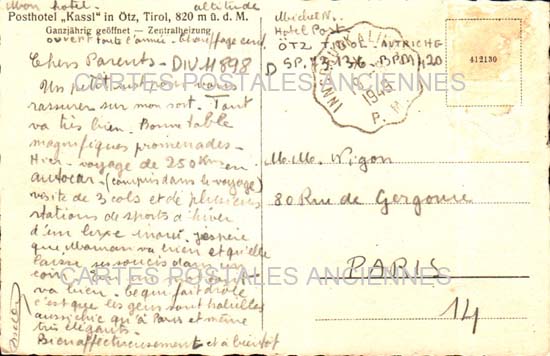 Mon hotel. altitude
Posthotel „Kassl" in Ötz, Tirol, 820 m ü. d. M.
Ganzjährig geöffnet — Zentralheizung
ouvert toute l'année - chauffage cent.
Chers Parents - DIV 11898
Un petit mot pour vous
rassurer sur mon sort. Tout
va très bien. Bonne table
magnifiques promenades -
Hier - voyage de 250 Kms en
autocar - (compris dans le voyage)
visite de 3 cols et de plusieurs
stations de sports d'hiver
d'un luxe inouï. J'espère
que Maman va bien et qu'elle
laisse ses soucis dans un
coin
va bien. Ce qui fait drôle
c'est que les gens sont habillés
aussi chic qu'à Paris et même
très élégants.
Bien affectueusement et à bientôt
Michel N.
Hotel Post
ÖTZ TYROL - AUTRICHE
SP. 73.136 - BPM 420
1949
P. M.
412130
M. M. Nigon
80 Rue de Gergovie
PARIS
14
CARTES POSTALES ANCIENNES
CARTES POSTALES ANCIENNES